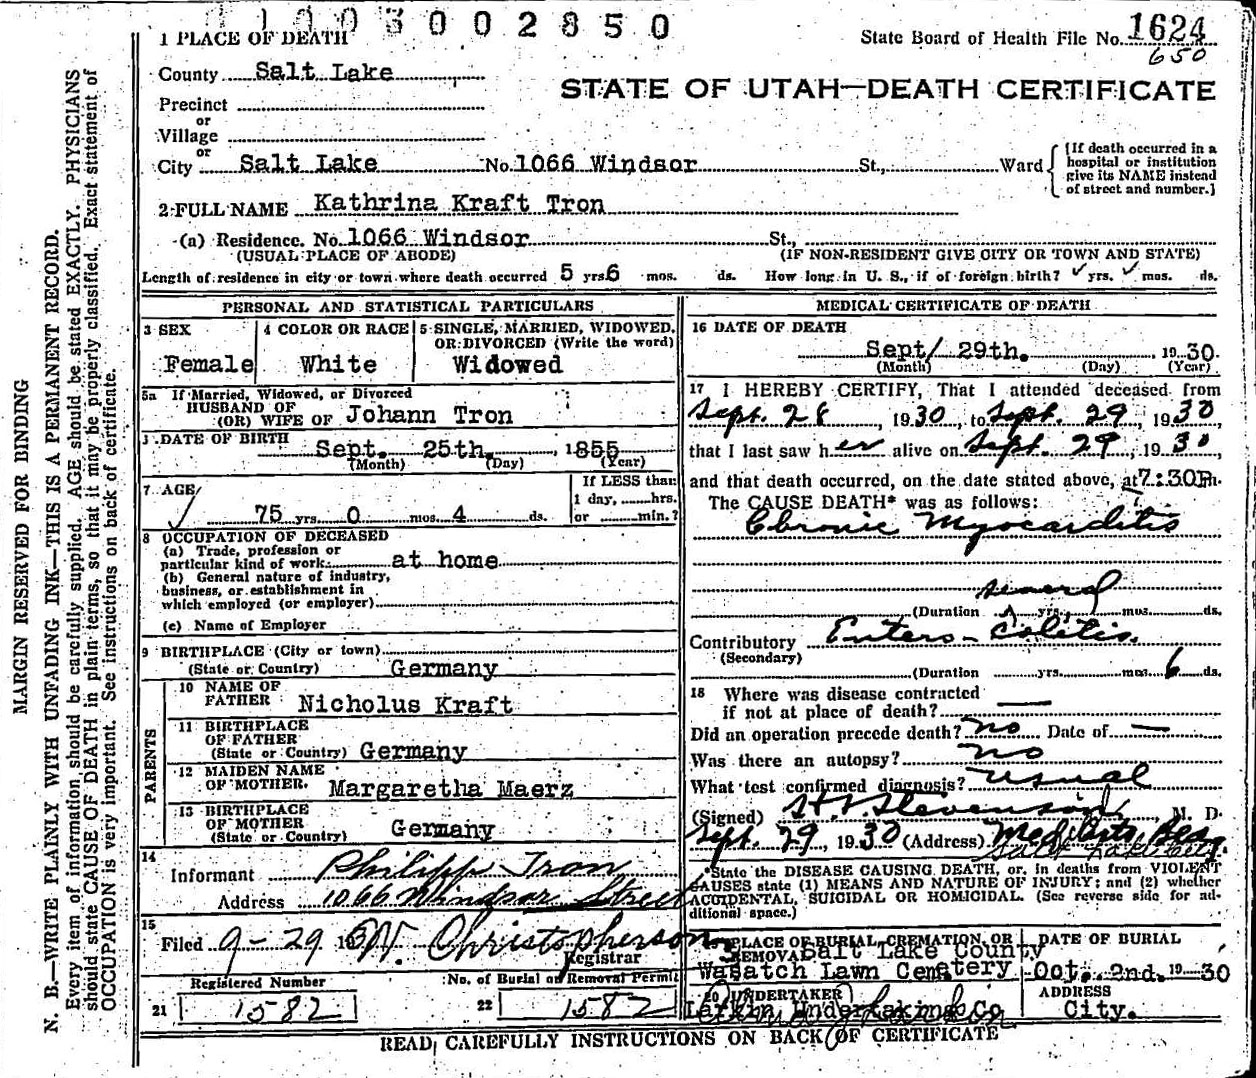 003002850
1 PLACE OF DEATH
State Board of Health File No. 1624
650
County Salt Lake
STATE OF UTAH—DEATH CERTIFICATE
Precinct
or
Village
or
City Salt Lake No. 1066 Windsor St., Ward
[If death occurred in a hospital or institution give its NAME instead of street and number.]
2 FULL NAME Kathrina Kraft Tron
(a) Residence. No. 1066 Windsor St.,
(USUAL PLACE OF ABODE) (IF NON-RESIDENT GIVE CITY OR TOWN AND STATE)
Length of residence in city or town where death occurred 5 yrs 6 mos. ds. How long in U. S., if of foreign birth? ✓ yrs. ✓ mos. ds.
PERSONAL AND STATISTICAL PARTICULARS
3 SEX
Female
4 COLOR OR RACE
White
5 SINGLE, MARRIED, WIDOWED, OR DIVORCED (Write the word)
Widowed
5a If Married, Widowed, or Divorced
HUSBAND OF
(OR) WIFE OF Johann Tron
DATE OF BIRTH
Sept. 25th. , 1855
(Month) (Day) (Year)
7 AGE
75 yrs. 0 mos. 4 ds.
If LESS than
1 day, hrs.
or min.?
8 OCCUPATION OF DECEASED
(a) Trade, profession or
particular kind of work at home
(b) General nature of industry,
business, or establishment in
which employed (or employer)
(c) Name of Employer
9 BIRTHPLACE (City or town)
(State or Country) Germany
PARENTS
10 NAME OF
FATHER Nicholus Kraft
11 BIRTHPLACE
OF FATHER
(State or Country) Germany
12 MAIDEN NAME
OF MOTHER. Margaretha Maerz
13 BIRTHPLACE
OF MOTHER
(State or Country) Germany
14
Informant Philipp Tron
Address 1066 Windsor Street
15
Filed 9-29 19 30 W. Christopherson
Registrar
Registered Number
21 1582
No. of Burial or Removal Permit
22 1582
MEDICAL CERTIFICATE OF DEATH
16 DATE OF DEATH
Sept/ 29th. 19 30
(Month) (Day) (Year)
17 I HEREBY CERTIFY, That I attended deceased from
Sept. 28, 1930, to Sept. 29, 1930
that I last saw h er alive on Sept. 29, 1930,
and that death occurred, on the date stated above, at 7:30P m.
The CAUSE DEATH* was as follows:
Chronic Myocarditis
several
(Duration yrs. mos. ds.
Contributory Entero-Colitis.
(Secondary)
(Duration yrs. mos. 6 ds.
18 Where was disease contracted
if not at place of death? —
Did an operation precede death? no Date of —
Was there an autopsy? no
What test confirmed diagnosis? usual
(Signed) Stevenson, M. D.
Sept. 29, 1930 (Address) Medical Arts Bldg.
Salt Lake City.
*State the DISEASE CAUSING DEATH, or, in deaths from VIOLENT
CAUSES state (1) MEANS AND NATURE OF INJURY; and (2) whether
ACCIDENTAL, SUICIDAL OR HOMICIDAL. (See reverse side for ad-
ditional space.)
PLACE OF BURIAL, CREMATION, OR
REMOVAL Salt Lake County
Wasatch Lawn Cemetery
DATE OF BURIAL
Oct. 2nd. 19 30
20 UNDERTAKER
Larkin Undertaking Co
ADDRESS
City.
READ CAREFULLY INSTRUCTIONS ON BACK OF CERTIFICATE
MARGIN RESERVED FOR BINDING
N. B.—WRITE PLAINLY WITH UNFADING INK—THIS IS A PERMANENT RECORD.
Every item of information should be carefully supplied. AGE should be stated EXACTLY. PHYSICIANS
should state CAUSE OF DEATH in plain terms, so that it may be properly classified. Exact statement of
OCCUPATION is very important. See instructions on back of certificate.